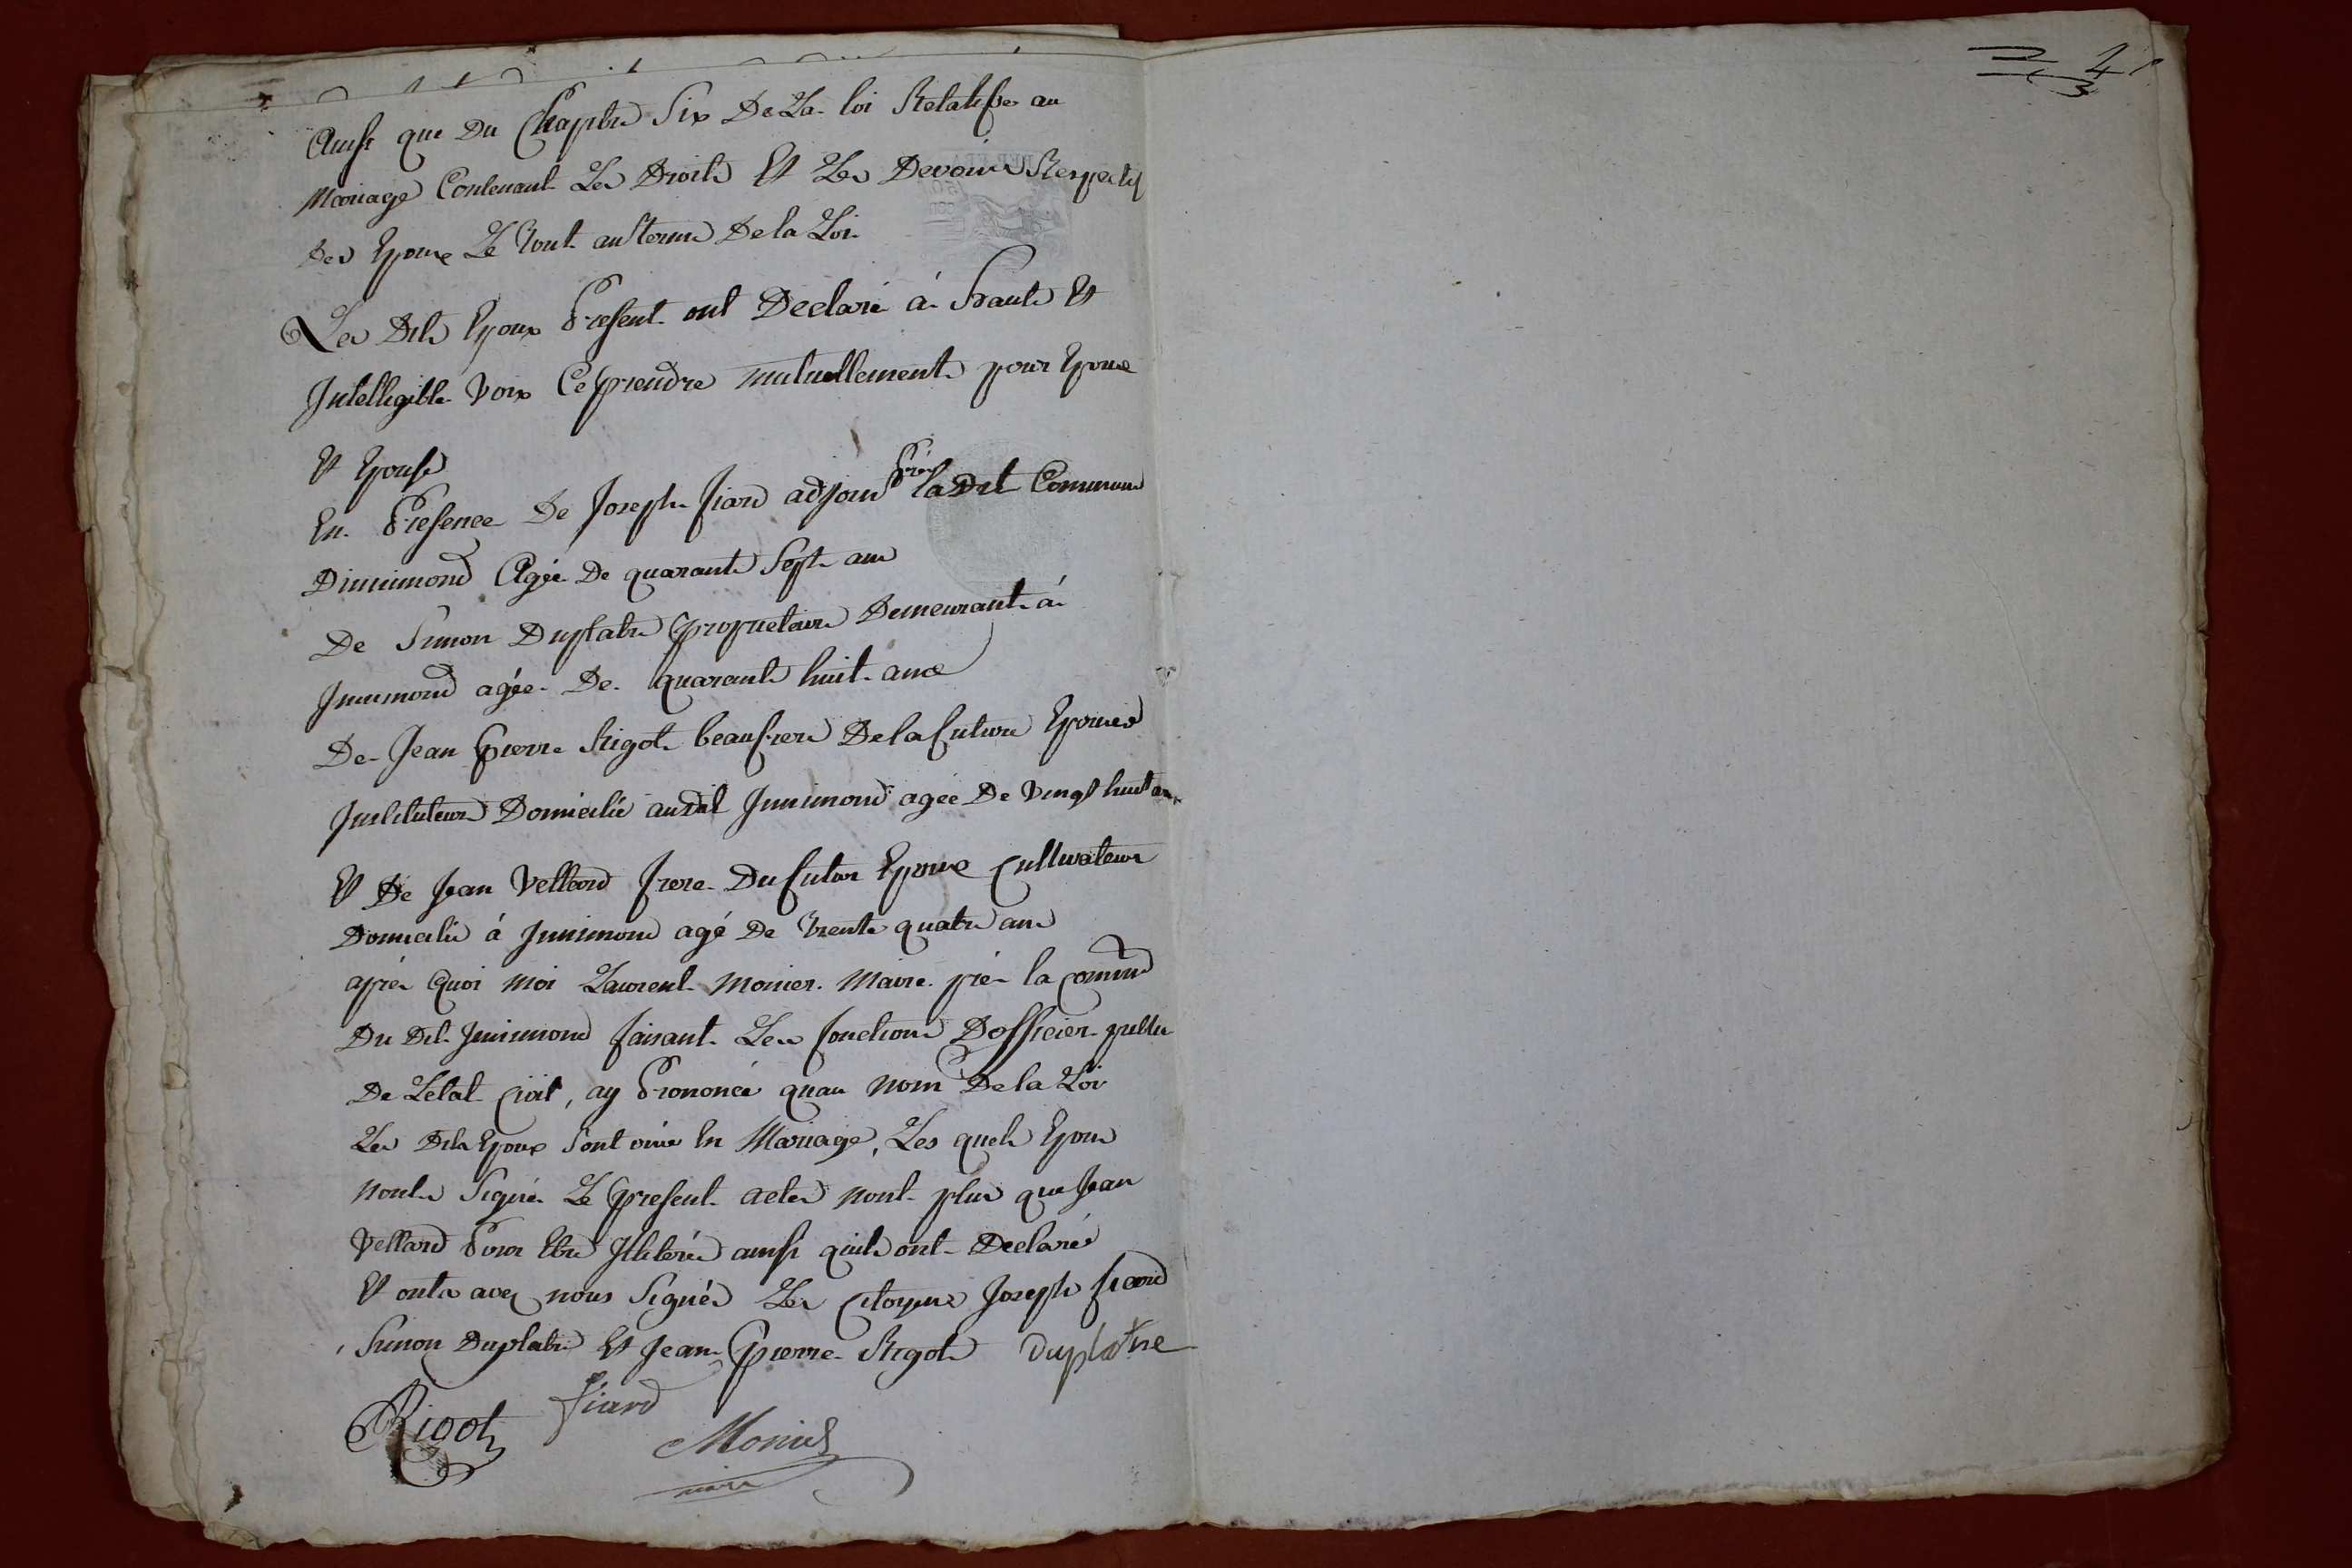 Ainsi que Du Chapitre Six De La loi Relatifve au
Mariage Contenant Les Droits Et Les Devoirs Respectif
Des Epoux Le Tout au Terme De la Loi
Les Dits Epoux Présent ont Declaré à haute Et
Intelligible Voix Ce prendre mutuellement pour Epoux
Et Epouse
En Présence De Joseph fiard adjoint près la Dit Commune
Dinnimond Agée De quarante Sept ans
De Simon Duplatre propriétaire Demeurant à
Innimond agée De quarante huit ans
De Jean Pierre Rigot beaufrere De la future Epouse
Instituteur Domicilié audit Innimond agée De Vingt huit ans
Et De Jean Vellard frere Du futur Epoux Cultivateur
Domicilié á Innimond agé De Trente quatre ans
après Quoi Moi Laurent Monier Maire près la Commune
Du Dit Innimond faisant Les fonctions Dofficier public
De Letat Civil, ay Prononcé quau nom De la Loi
Les Dits Epoux Sont Unis En Mariage, Les quels Epoux
nonts Signé Le présent actes nont plus que Jean
Vellard Pour Etre Illiterés ainsi quils ont Declarés
Et onts avec nous Signés Les Citoyens Joseph fiard
Simon Duplatre Et Jean Pierre Rigot duplatre
Rigot fiard
Monier
maire